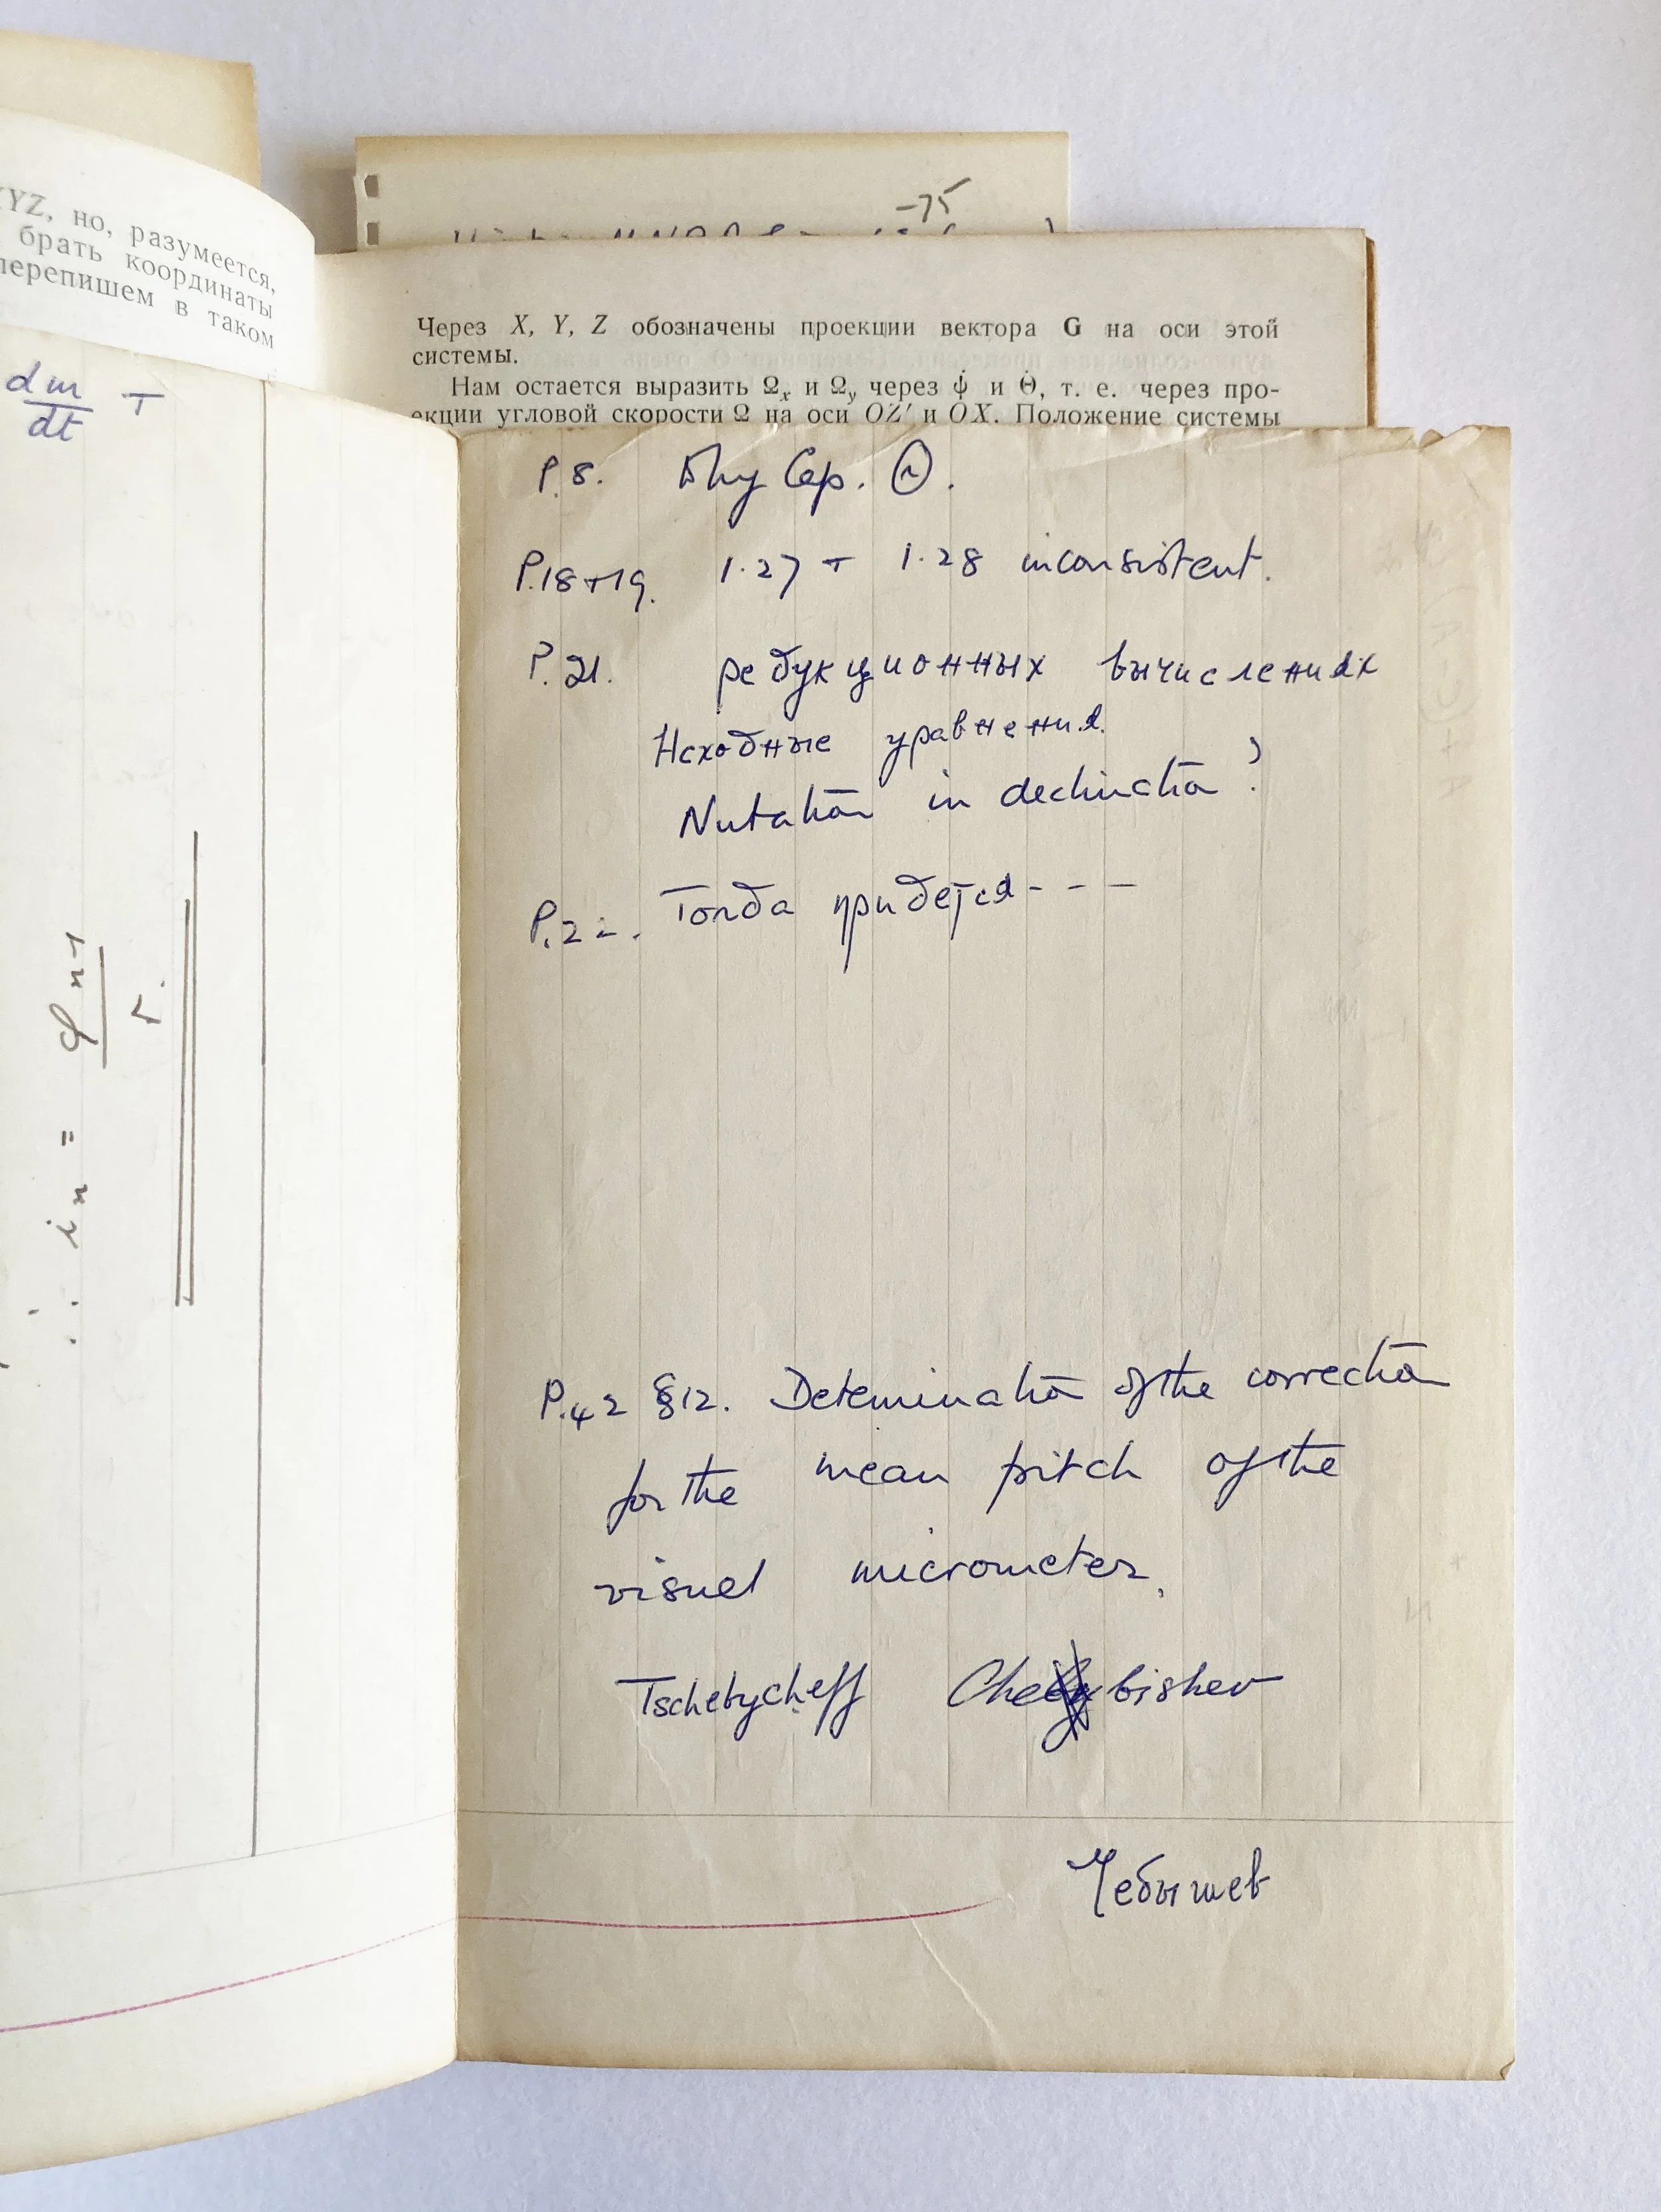 XYZ, но, разумеется,
брать координаты
перепишем в таком
dm/dt T
i_n = φ_n-1 / r.
-75
Через X, Y, Z обозначены проекции вектора G на оси этой
системы.
Нам остается выразить Ω_x и Ω_y через ψ̇ и Θ̇, т. е. через про-
екции угловой скорости Ω на оси OZ′ и OX. Положение системы
P.8. Why Cap. Θ.
P.18+19. 1.27 + 1.28 inconsistent.
P.21. редукционных вычислениях
Исходные уравнения
Nutation in declination?
P.22. Тогда придется - - -
P.42 §12. Detemination of the correction
for the mean pitch of the
visuel micrometer.
Tschebycheff Chebishev
Чебышев